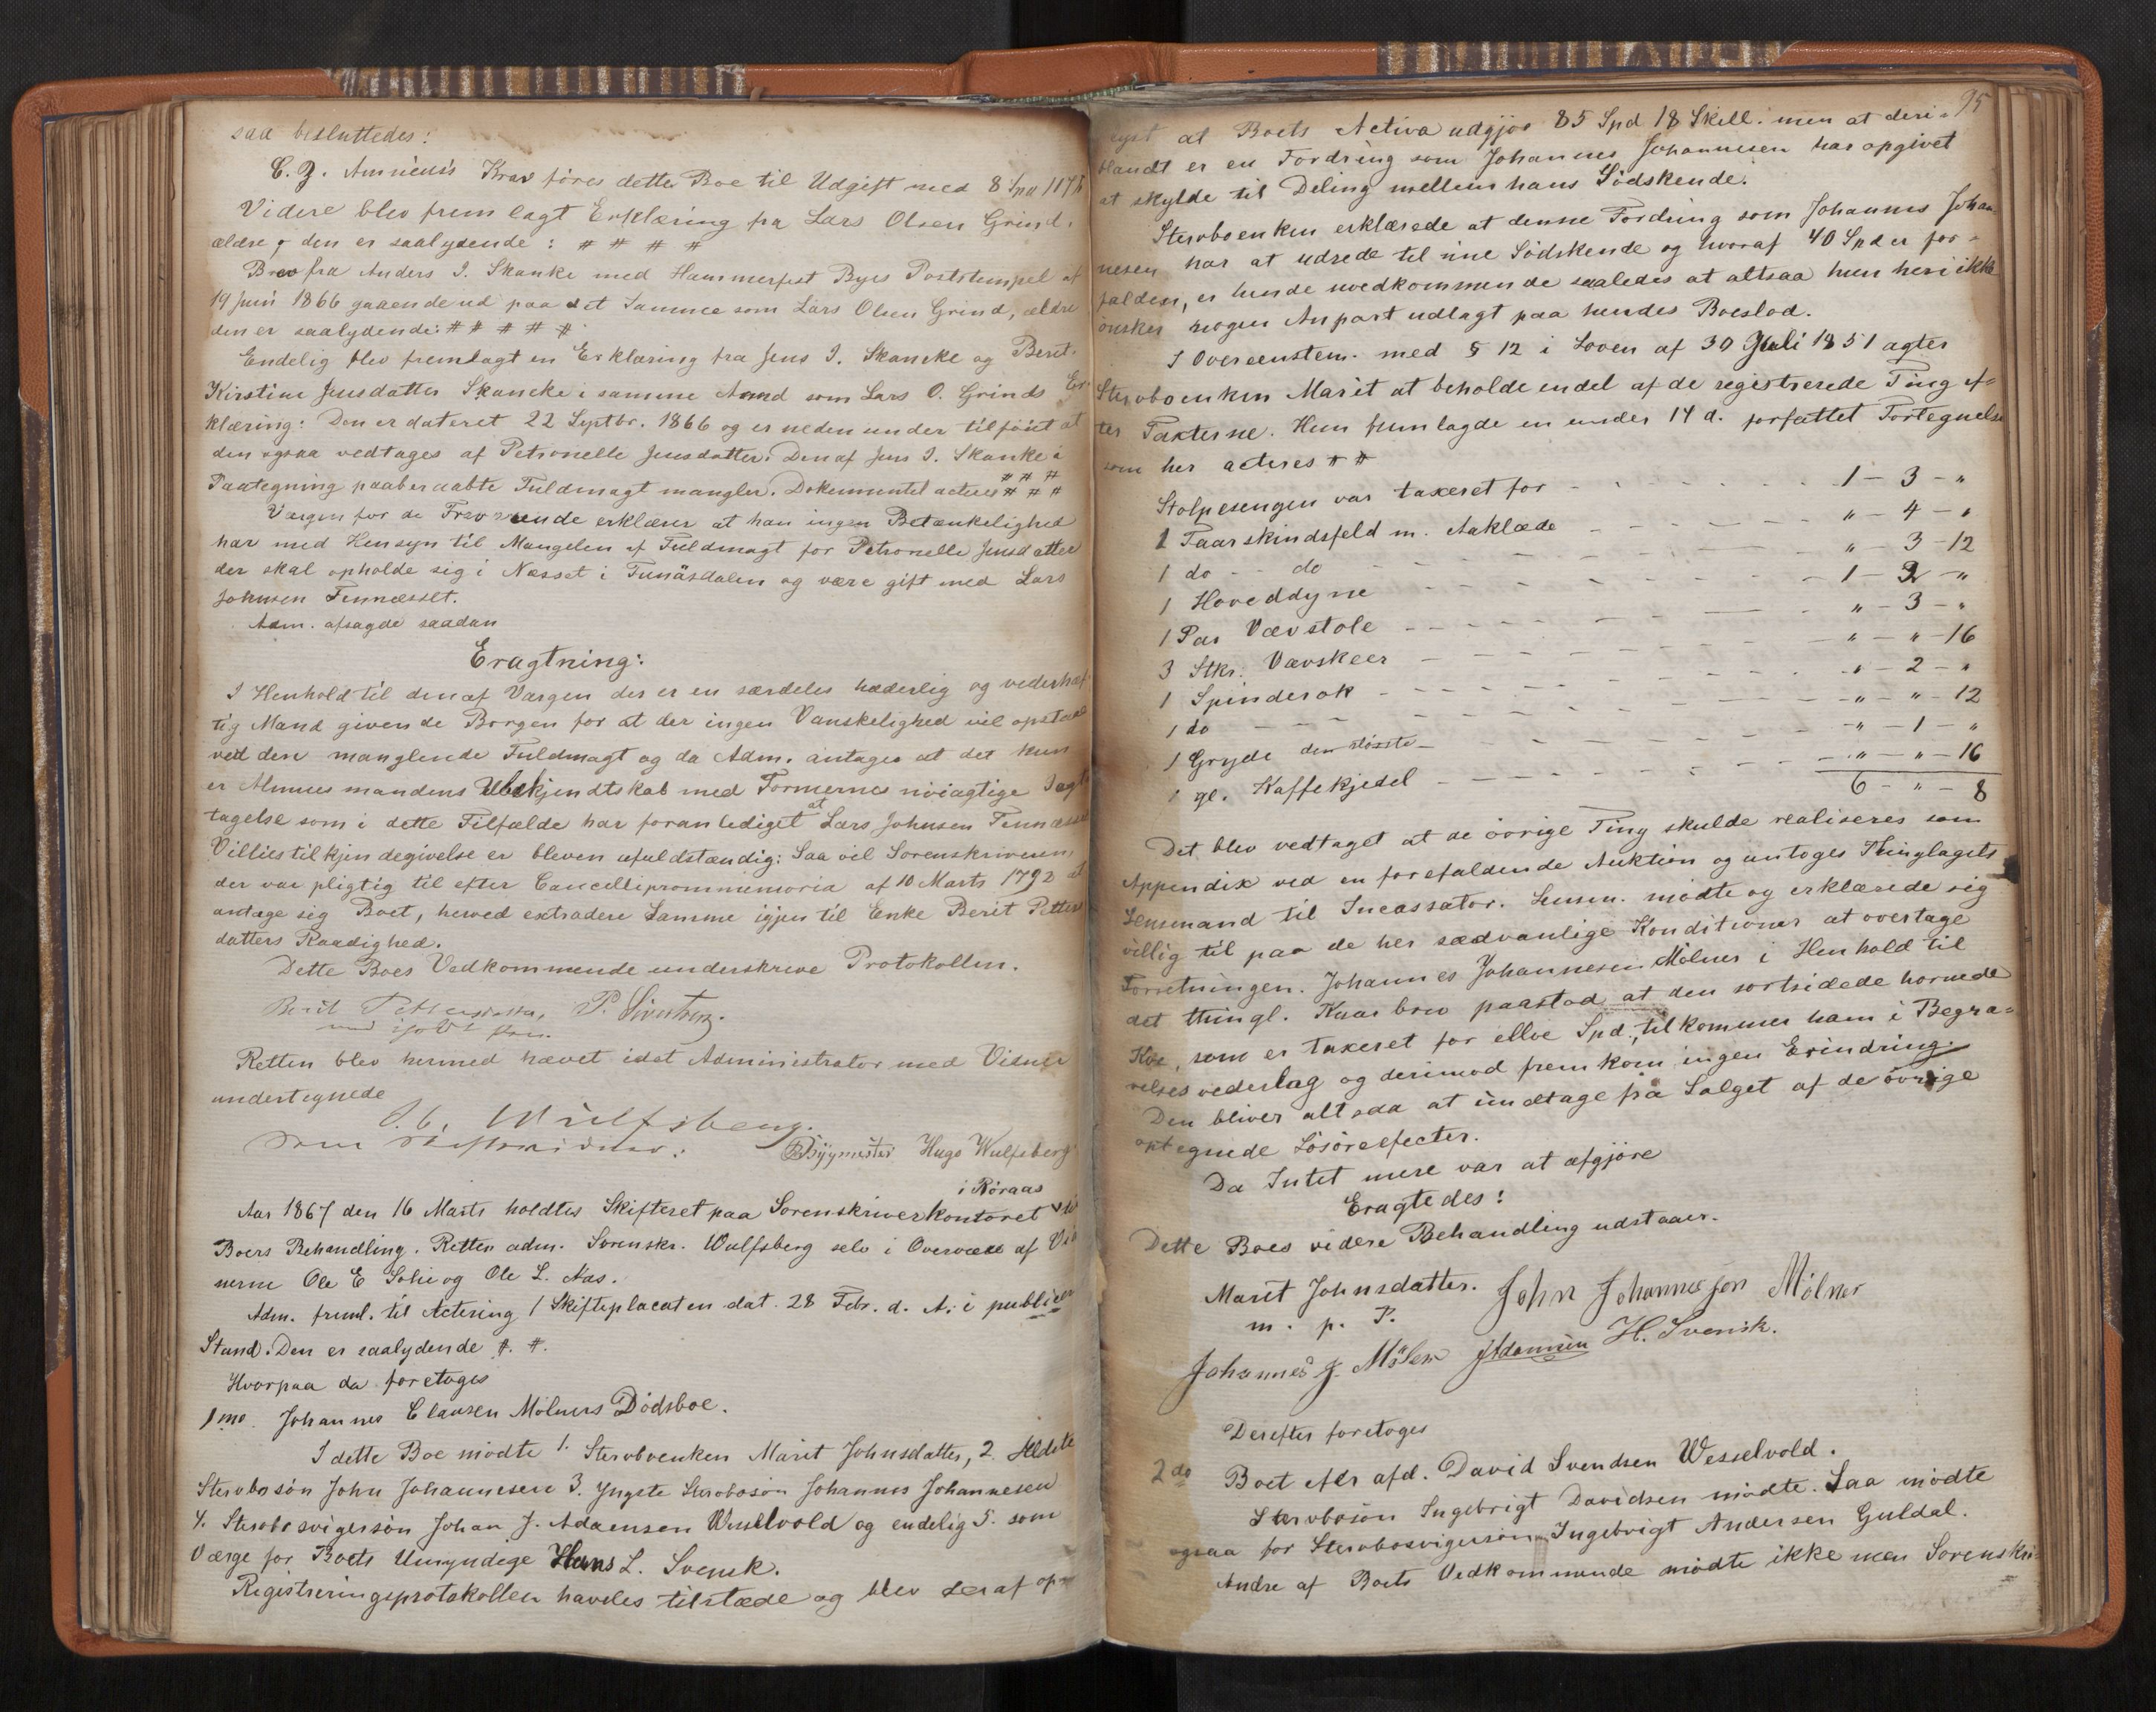 saa besluttedes:
C. Z. Anneus's Krav föres dette Boe til Udgift med 8 Spd 117 ß
Videre blev fremlagt Erklæring fra Lars Olsen Grind,
ældre, den er saalydende: # # # #
Brev fra Anders J. Skanke med Hammerfest Byes Poststempel af
19 Juni 1866 gaaende ud paa det Samme som Lars Olsen Grind, ældre
den er saalydende: # # # # #
Endelig blev fremlagt en Erklæring fra Jens J. Skancke og Berit
Kirstine Jensdatter Skancke i samme Aand som Lars O. Grinds Er-
klæring: Den er dateret 22 Septbr. 1866 og er nedenunder tilföiet at
den ogsaa vedtages af Petronelle Jensdatter. Den af Jens J. Skanke i
Paategning paaberaabte Fuldmagt mangler. Dokumentet acteres # # #
# # #
Værgen for de Fraværende erklærer at han ingen Betænkelighed
har med Hensyn til Mangelen af Fuldmagt for Petronelle Jensdatter
der skal opholde sig i Næsset i Funäsdalen og være gift med Lars
Johnsen Tennæsset.
Adm. afsagde saadan
Eragtning:
I Henhold til den af Værgen der er en særdeles hæderlig og vederhæf-
tig Mand givende Borgen for at der ingen Vanskelighed vil opstaae
ved den manglende Fuldmagt og da Adm. antager at det kun
er Almuesmandens Ubekjendtskab med Formernes nöiagtige Iagt-
tagelse som i dette Tilfælde har foranlediget at Lars Johnsen Tennæssets
Villiestilkjendegivelse er bleven ufuldstændig: Saa vil Sorenskriveren,
der var pligtig til efter Cancellipromemoria af 10 Marts 1792 at
antage sig Boet, herved extradere Samme igjen til Enke Berit Petters
datters Raadighed.
Dette Boes Vedkommende underskrive Protokollen.
Berit Pettersdatter, P. Sivertsen.
Retten blev hermed hævet idet Administrator med Vidner
undertegnede
O. C. Wulfsberg.
Som Skiftevidner: Byymester Hugo Wulfsberg
i Röraas
Aar 1867 den 16 Marts holdtes Skifteret paa Sorenskriverkontoret
Boers Behandling. Retten adm. Sorenskr. Wulfsberg selv i Overvær af Vid
nerne Ole E Solie og Ole L. Aas.
Adm. freml. til Actering 1 Skifteplacaten dat. 28 Febr. d. A. i publicer
Stand. Den er saalydende #. #.
Hvorpaa da foretoges
1mo. Johannes Clausen Mölners Dödsboe.
I dette Boe mödte 1. Stervboenken Marit Johnsdatter, 2. Ældste
Stervbosön John Johannesen 3. Yngste Stervbosön Johannes Johannesen
4. Stervbosvigersön Johan J. Adamsen Wesselvold og endelig 5. som
Værge for Boets Umyndige Hans L. Svensk.
Registreringsprotokollen havdes tilstæde og blev deraf op-
95
lyst at Boets Activa udgjör 85 Spd 18 Skill. men at deri-
blandt er en Fordring som Johannes Johannesen har opgivet
at skylde til Deling mellem hans Södskende.
Stervboenken erklærede at denne Fordring som Johannes Johan-
nesen har at udrede til sine Södskende og hvoraf 40 Spd er for-
falden, er hende uvedkommende saaledes at altsaa hun heri ikke
önsker nogen Anpart udlagt paa hendes Boeslod.
I Overeenstem. med § 12 i Loven af 30 Juli 1851 agter
Stervboenken Marit at beholde endel af de registrerede Ting ef-
ter Taxterne. Hun fremlagde en under 14 d. forfattet Fortegnelse
som her acteres # #
Stolpesengen var taxeret for - - - 1 - 3 - "
1 Faarskindsfeld m. Aaklæde - - - " - 4 - "
1 do - - do - - - " - 3 - 12
1 Hoveddyne - - - 1 - 2 - "
1 Par Vævstole - - - " - 3 - "
3 Stkr. Vævskeer - - - " - " - 16
1 Spinderok - - - " - 2 - "
1 do - - - " - " - 12
1 Gryde den störste - - - " - 1 - "
1 gl. Kaffekjedel - - - " - " - 16
6 - " - 8
Det blev vedtaget at de övrige Ting skulde realiseres som
Appendix ved en forefaldende Auktion og antoges Thinglagets
Lensmand til Incassator. Lensm. mödte og erklærede sig
villig til paa de her sædvanlige Konditioner at overtage
Forretningen. Johannes Johannesen Mölner i Henhold til
det thingl. Kaarbrev paastod at den sortsidede hornede
Koe, som er taxeret for ellve Spd., tilkommer ham i Begra-
velsesvederlag og derimod fremkom ingen Erindring.
Den bliver altsaa at undtage fra Salget af de övrige
optegnede Lösöreeffecter.
Da Intet mere var at afgjöre
Eragtedes:
Dette Boes videre Behandling udstaaer.
Marit Johnsdatter. John Johannesson Mölner
m. p. P.
Johannes J. Möler JAdamsen H. Svensk.
Derefter foretoges
2do Boet efter afd. David Svendsen Wesselvold.
Stervbosön Ingebrigt Davidsen mödte. Saa mödte
ogsaa for Stervbosvigersön Ingebrigt Andersen Guldal.
Andre af Boets Vedkommende mödte ikke men Sorenskri-